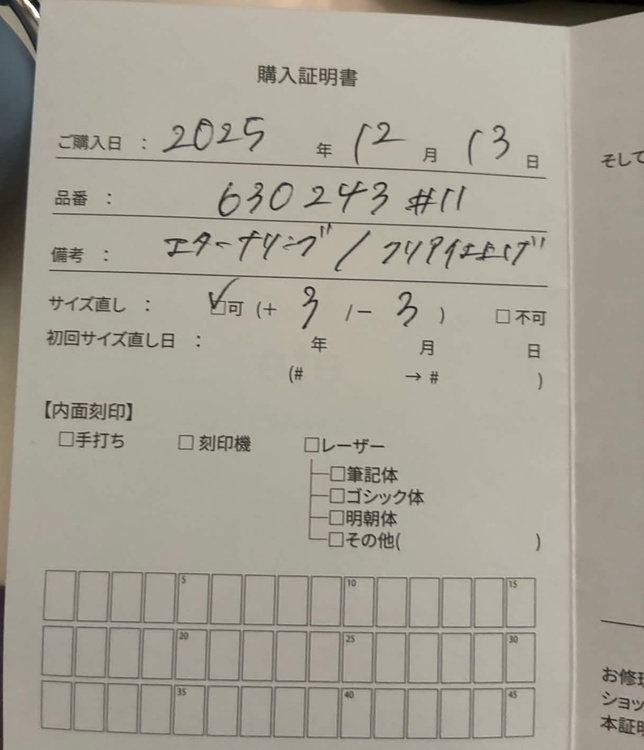 購入証明書
ご購入日 : 2025 年 12 月 13 日
品番 : 630243 #11
備考 : エターナリング" /
サイズ直し : ☑可 (+ 3 /− 3 ) □不可
初回サイズ直し日 : 年 月 日
(# → # )
【内面刻印】
□手打ち □刻印機 □レーザー
□筆記体
□ゴシック体
□明朝体
□その他( )
5 10 15
20 25 30
35 40 45
そして
お修理
ショッ
本証明